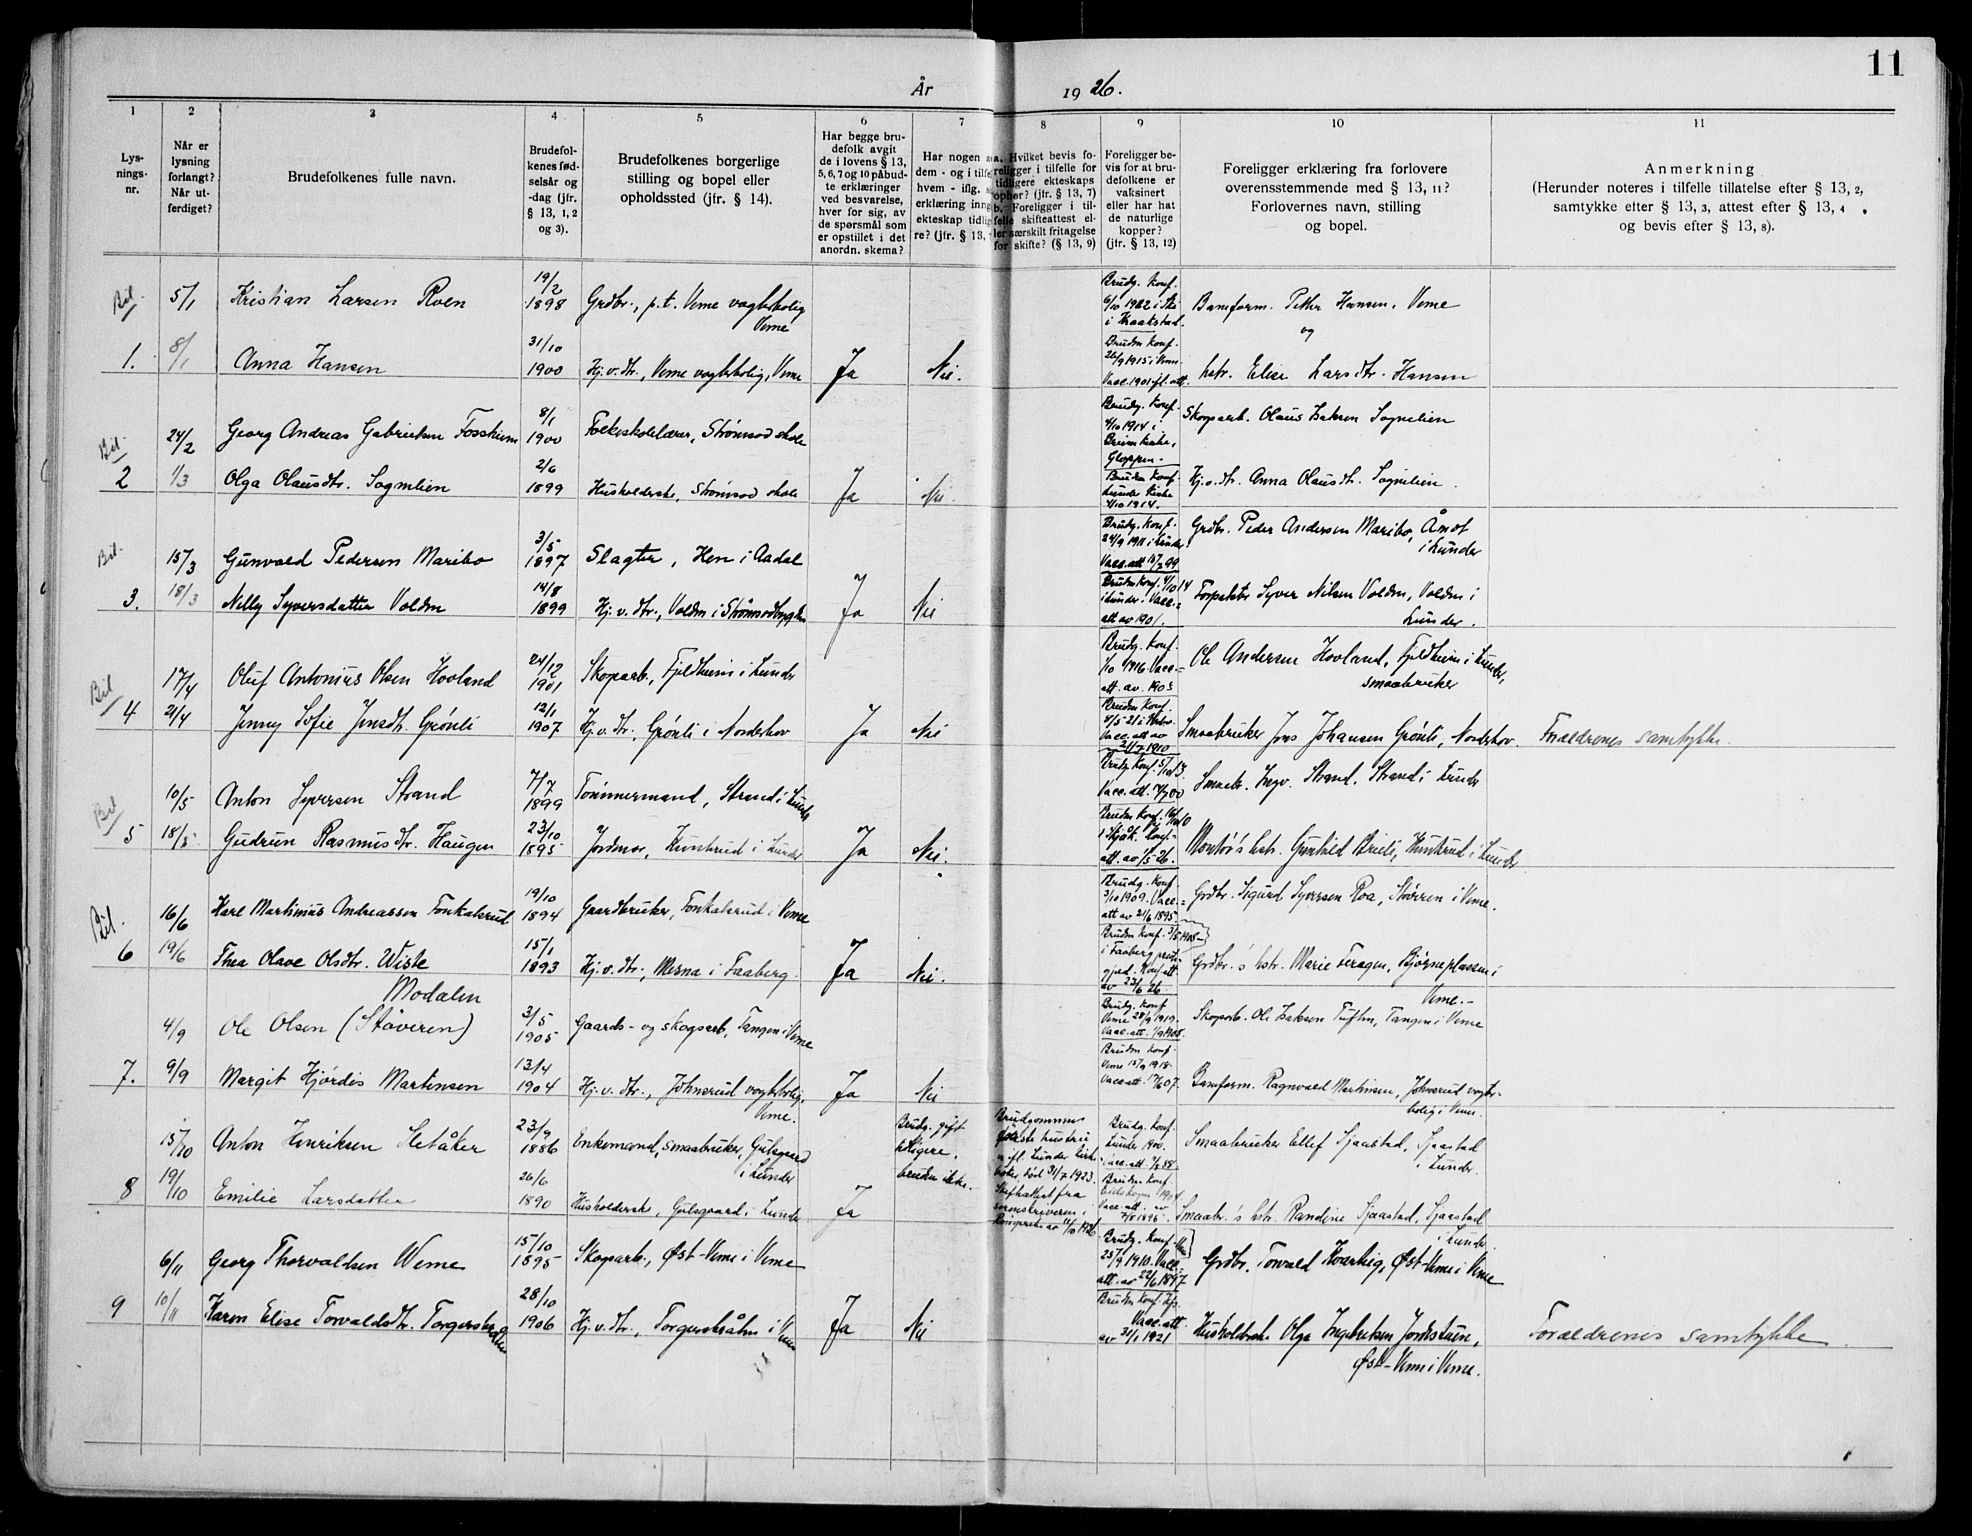 11
År 1926.
1 2 3 4 5 6 7 8 9 10 11
Lys-
nings-
nr.
Når er
lysning
forlangt?
Når ut-
ferdiget?
Brudefolkenes fulle navn.
Brudefol-
kenes fød-
selsår og
-dag (jfr.
§ 13, 1, 2
og 3).
Brudefolkenes borgerlige
stilling og bopel eller
opholdssted (jfr. § 14).
Har begge bru-
defolk avgit
de i lovens § 13,
5, 6, 7 og 10 påbud-
te erklæringer
ved besvarelse,
hver for sig, av
de spørsmål som
er opstillet i det
anordn. skema?
Har nogen a
dem - og i tilfe
hvem - iflg. s
erklæring inng
ekteskap tidlig
re? (jfr. § 13,
a. Hvilket bevis fo-
religger i tilfelle for
tidligere ekteskaps
ophør? (jfr. § 13, 7)
b. Foreligger i til-
felle skifteattest el-
ler særskilt fritagelse
for skifte? (§ 13, 9)
Foreligger be-
vis for at bru-
defolkene er
vaksinert
eller har hat
de naturlige
kopper?
(jfr. § 13, 12)
Foreligger erklæring fra forlovere
overensstemmende med § 13, 11?
Forlovernes navn, stilling
og bopel.
Anmerkning
(Herunder noteres i tilfelle tillatelse efter § 13, 2,
samtykke efter § 13, 3, attest efter § 13, 4
og bevis efter § 13, 8).
Bil. 5/1 Kristian Larsen Roen 19/2 1898 Grdbr., p.t. Veme vogterbolig Veme
Brudg. Konf. 6/10 1922 i Ski i Kraakstad.
Banform. Petter Hansen, Veme
og
1. 8/1 Anna Hansen 31/10 1900 Hj.v. dtr., Veme vogterbolig, Veme Ja Nei.
Bruden Konf. 26/9 1915 i Veme. Vacc. 1901 fl. att.
hstr. Elise Larsdtr. Hansen
Bil. 24/2 Georg Andreas Gabrielsen Fossheim 8/1 1900 Folkeskolelærer, Strømsod skole
Brudg. Konf. 4/10 1914 i Breim kirke, Gloppen -
Skogarb. Olaus Isaksen Sognelien
2 1/3 Olga Olausdtr. Sognlien 2/6 1899 Husholderske, Strømsod skole Ja Nei.
Bruden Konf. Lunder kirke 4/10 1914.
Hj.v. dtr. Anna Olausdtr. Sognelien.
Bil. 15/3 Gunvald Pedersen Maribo 3/5 1897 Slagter, Hen i Aadal
Brudg. Konf. 24/9 1911 i Lunder Vacc. att
Grdbr. Peder Andersen Maribo, Åmot i Lunder
3. 18/3 Nelly Syversdatter Volden 14/8 1899 Hj.v. dtr., Volden i Strømsodbygden Ja Nei
Bruden Konf. 4/10 14 i Lunder. Vacc. att av 1901.
Forpakter Syver Nilsen Volden, Volden i Lunder.
Bil 17/4 Oluf Antonius Olsen Hovland 24/12 1901 Skogarb., Fjeldheim i Lunder
Brudg. Konf. 1/10 1916 Vacc. att. av. 1903
Ole Andersen Hovland, Fjeldheim i Lunder, smaabruker
4 21/4 Jenny Sofie Jensdt. Grønli 12/1 1907 Hj.v. dtr., Grønli i Norderhov Ja Nei
Bruden Konf. Vacc. att av 1910
Smaabruker Jens Johansen Grønli, Norderhov.
Forældrenes samtykke.
Bil 10/5 Anton Syversen Strand 7/7 1899 Tømmermand, Strand i Lunder
Brudg. Konf. 5/10 13. Vacc. att.
Smaabr. Ingv. Strand, Strand i Lunder
5 18/5 Gudrun Rasmusdtr. Haugen 23/10 1895 Jordmor, Kunstrud i Lunder Ja Nei.
Bruden Konf. i Skjåk. Konf. att. av 1/5 26.
Montør's hstr. Gunhild Brieli, Kunstrud i Lunder
Bil. 16/6 Karl Martinius Andreassen Fonkalsrud 19/10 1894 Gaardbruker, Fonkalsrud i Veme
Brudg. Konf. 3/10 1909. Vacc. att av 21/6 1895.
Grdbr. Sigurd Syversen Roa, Støveren i Veme.
6 19/6 Thea Olave Olsdtr. Wiste 15/1 1893 Hj.v. dtr., Mesna i Faaberg Ja Nei.
Bruden Konf. 3/5 1908 i Faaberg prestegjeld. Konf. att av 23/6 26
Grdbr.'s hstr. Marie Feragen, Bjørneplassen i Veme.-
Modalen
4/9 Ole Olsen (Støveren) 3/5 1905 Gaards- og skogsarb., Tangen i Veme
Brudg. Konf Veme 28/9 1919. Vacc. att. 1/9 1908.
Skogarb. Ole Isaksen Tuften, Tangen i Veme
7. 9/9 Margit Hjørdis Martinsen 13/4 1904 Hj.v. dtr., Johnsrud vogterbolig, Veme. Ja Nei
Bruden Konf. Veme 15/9 1918. Vacc. att.
Banform. Ragnvald Martinsen, Johnsrud vogterbolig i Veme.
15/10 Anton Henriksen Sletåker 23/9 1886 Enkemand, smaabruker, Gulsgaard i Lunder
Brudg. gift tidligere. bruden ikke.
Brudgommens første hustru ifl. Lunder kirkebøker død 31/7 1923. Skifteattest fra sorenskriveren i Ringerike av 11/10 1926
Brudg. Konf. Lunder 1900. Vacc. att.
Smaabruker Ellef Sjaastad, Sjaastad i Lunder.
8 19/10 Emilie Larsdatter 26/6 1890 Husholdersk, Gulsgaard i Lunder Ja
Bruden Konf. Eidskogen 1904 Vacc. att. av 1895.
Smaabr.'s hstr. Randine Sjaastad, Sjaastad i Lunder.
6/11 Georg Thorvaldsen Weme 15/10 1895 Skogarb., Øst-Veme i Veme
Brudg. Konf. Veme 25/9 1910. Vacc. att. av 22/6 1897
Grdbr. Torvald Kvartieg, Øst-Veme i Veme
9 10/11 Karen Elise Torvaldsdtr. Torgerstråten 28/10 1906 Hj.v. dtr., Torgerstråten i Veme Ja Nei
Bruden Konf. Vacc. att av 31/1 1921
Husholderske Olga Ingebretsen Jordstuen, Øst-Veme i Veme.
Forældrenes samtykke.